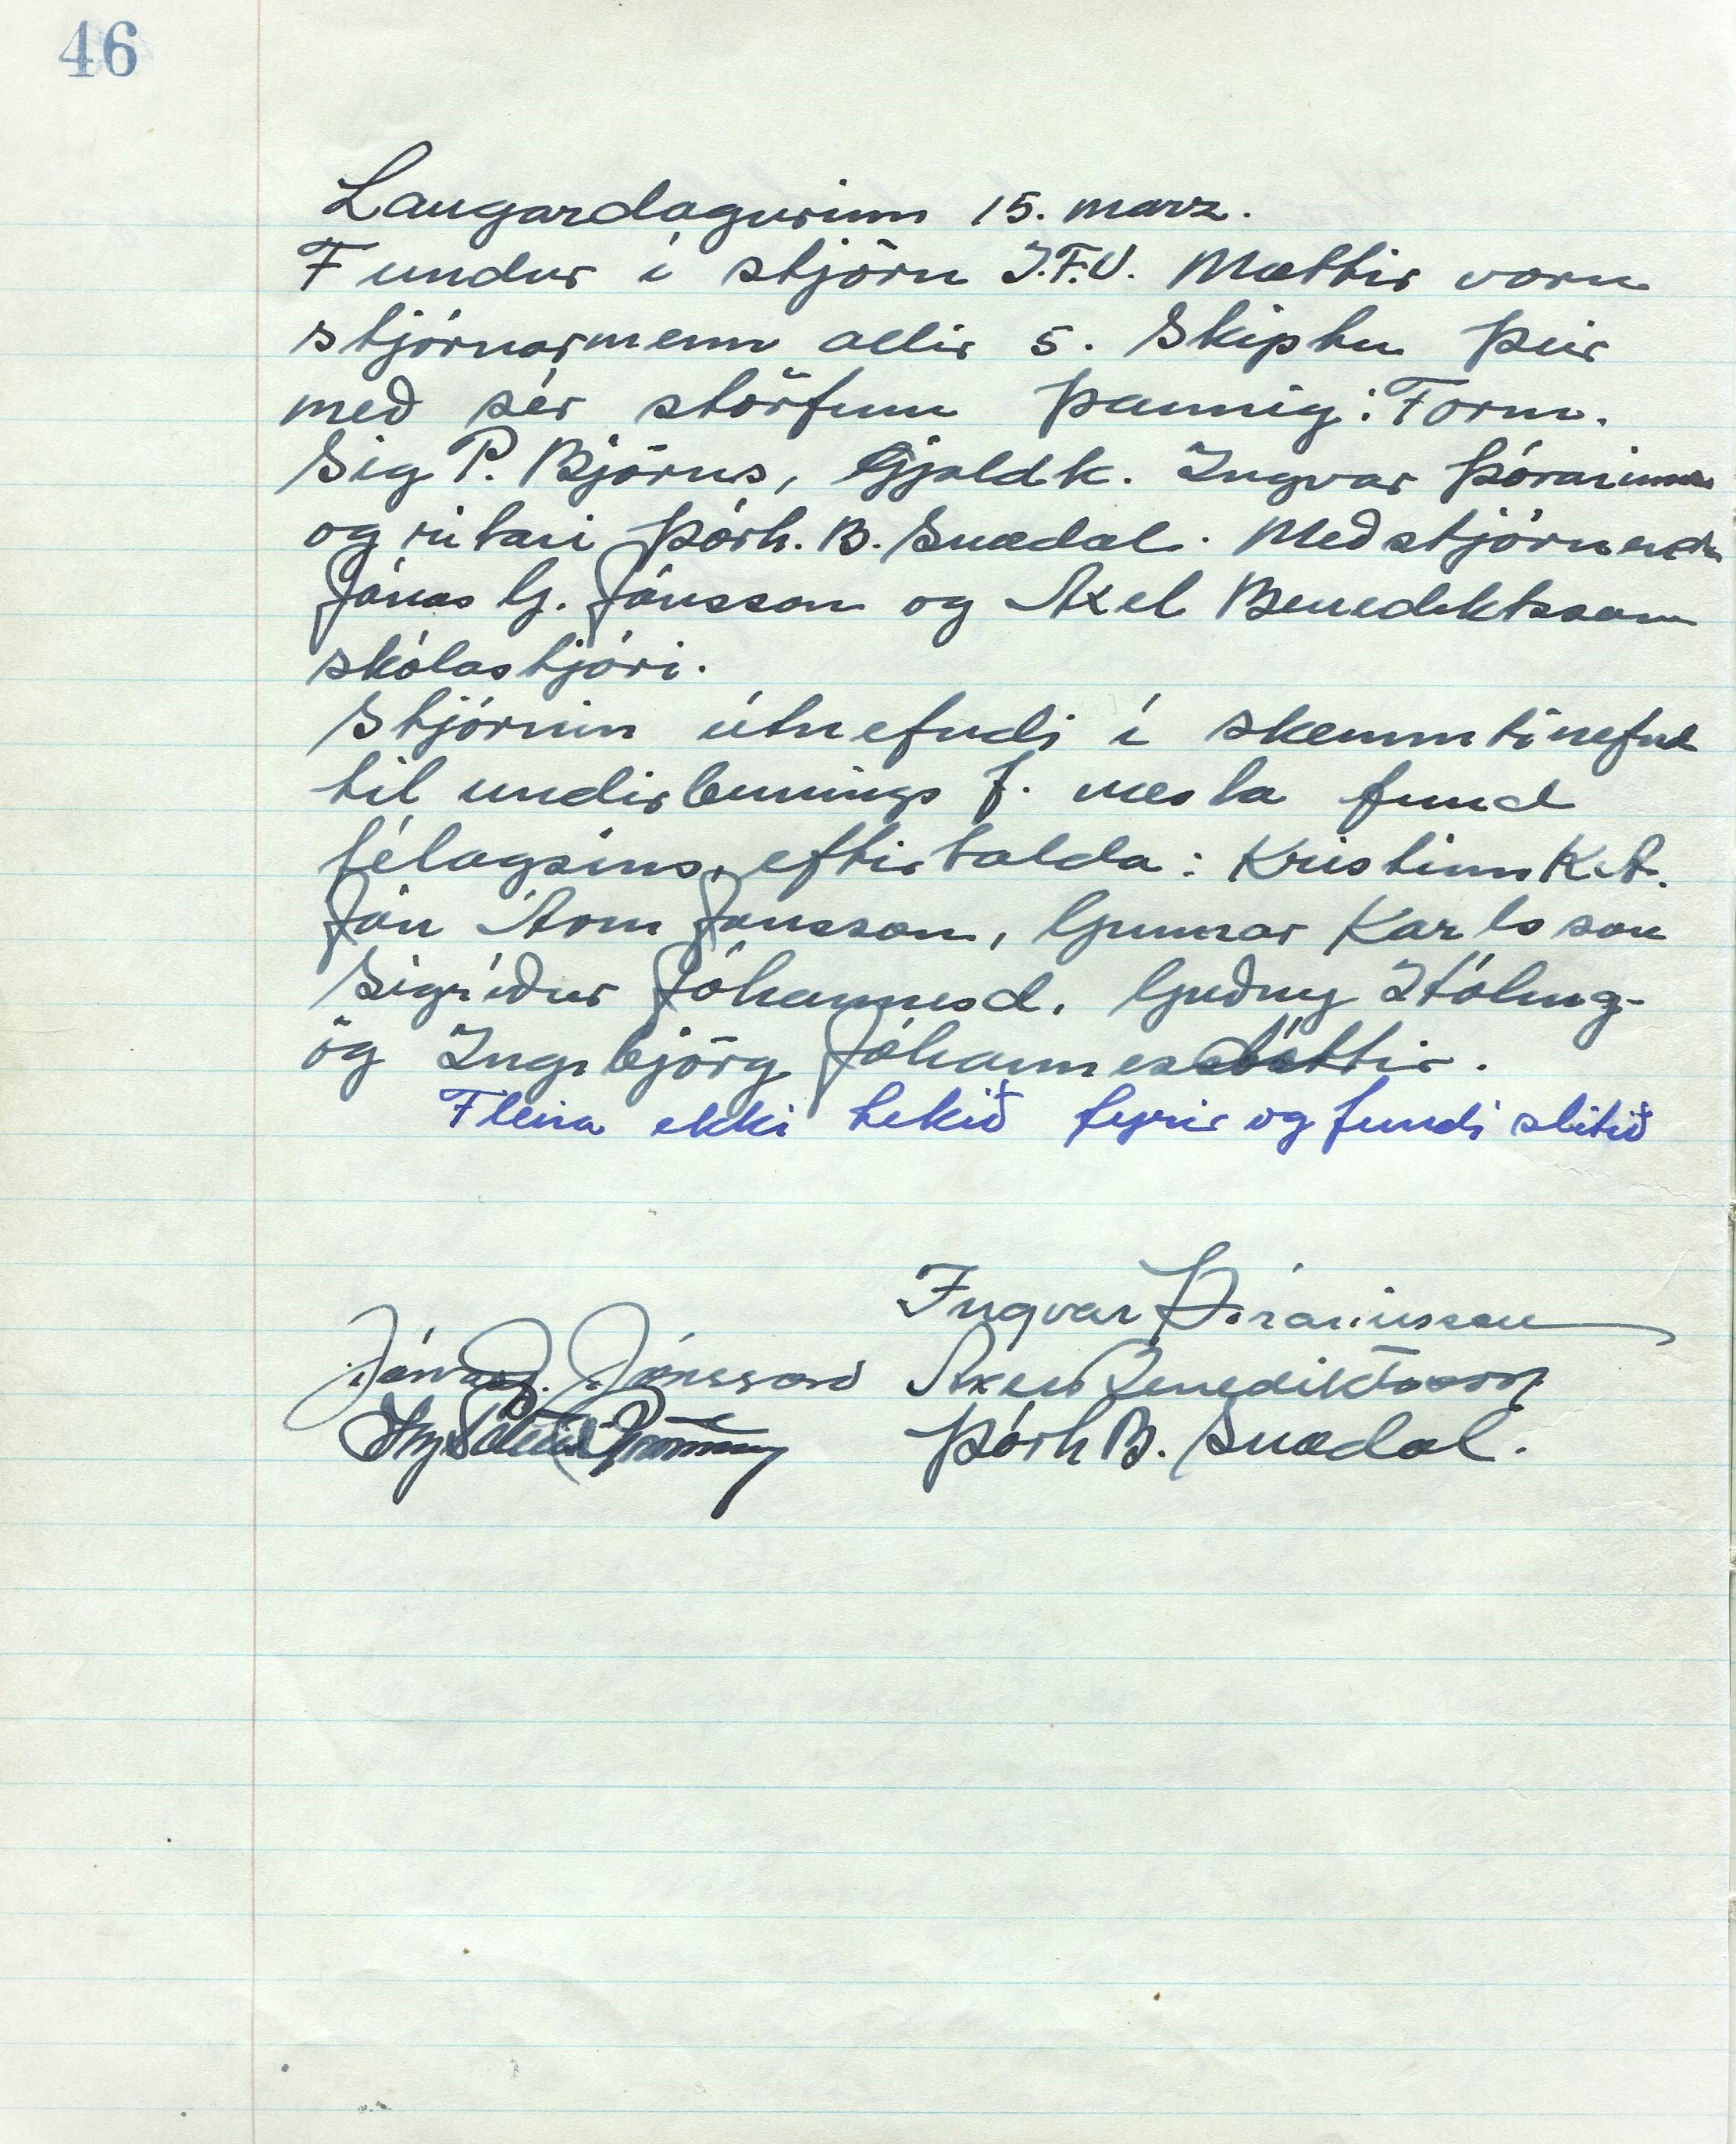 46
Laugardagurinn 15. marz.
Fundur í stjórn I.F.V. Mættir voru
stjórnarmenn allir 5. Skiptu þeir
með sér störfum þannig: Form.
Sig P. Björns, Gjaldk. Ingvar Þórarinss
og ritari Þórh. B. Snædal. Meðstjórnendur
Jónas G. Jónsson og Axel Benediktsson
skólastjóri.
Stjórnin útnefndi í skemmtinefnd
til undirbúnings f. næsta fund
félagsins, eftirtalda: Kristinn K.A.
Jón Árm Jónsson, Gunnar Karlsson
Sigríður Jóhannesd. Guðný
og Ingibjörg Jóhannesdóttir.
Fleira ekki tekið fyrir og fundi slitið
Ingvar Þórarinsson
Jónas G. Jónsson Axel Benediktsson
Þórh B. Snædal.